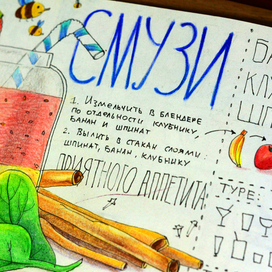 СМУЗИ
1. Измельчить в блендере
по отдельности клубнику,
банан и шпинат
2. Вылить в стакан слоями:
шпинат, банан, клубнику
ПРИЯТНОГО АППЕТИТА
TYPE: